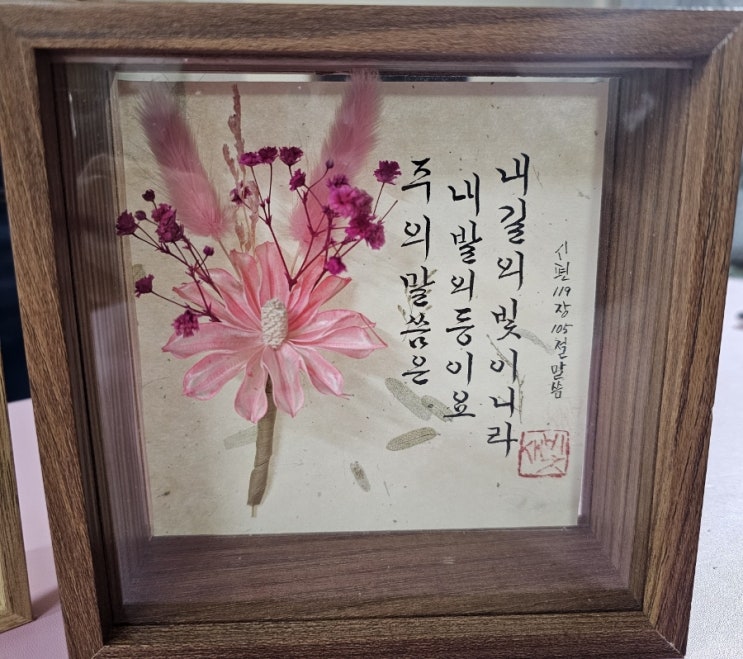 주의 말씀은
내 발의 등이요
내 길의 빛이니라
시편 119장 105절 말씀